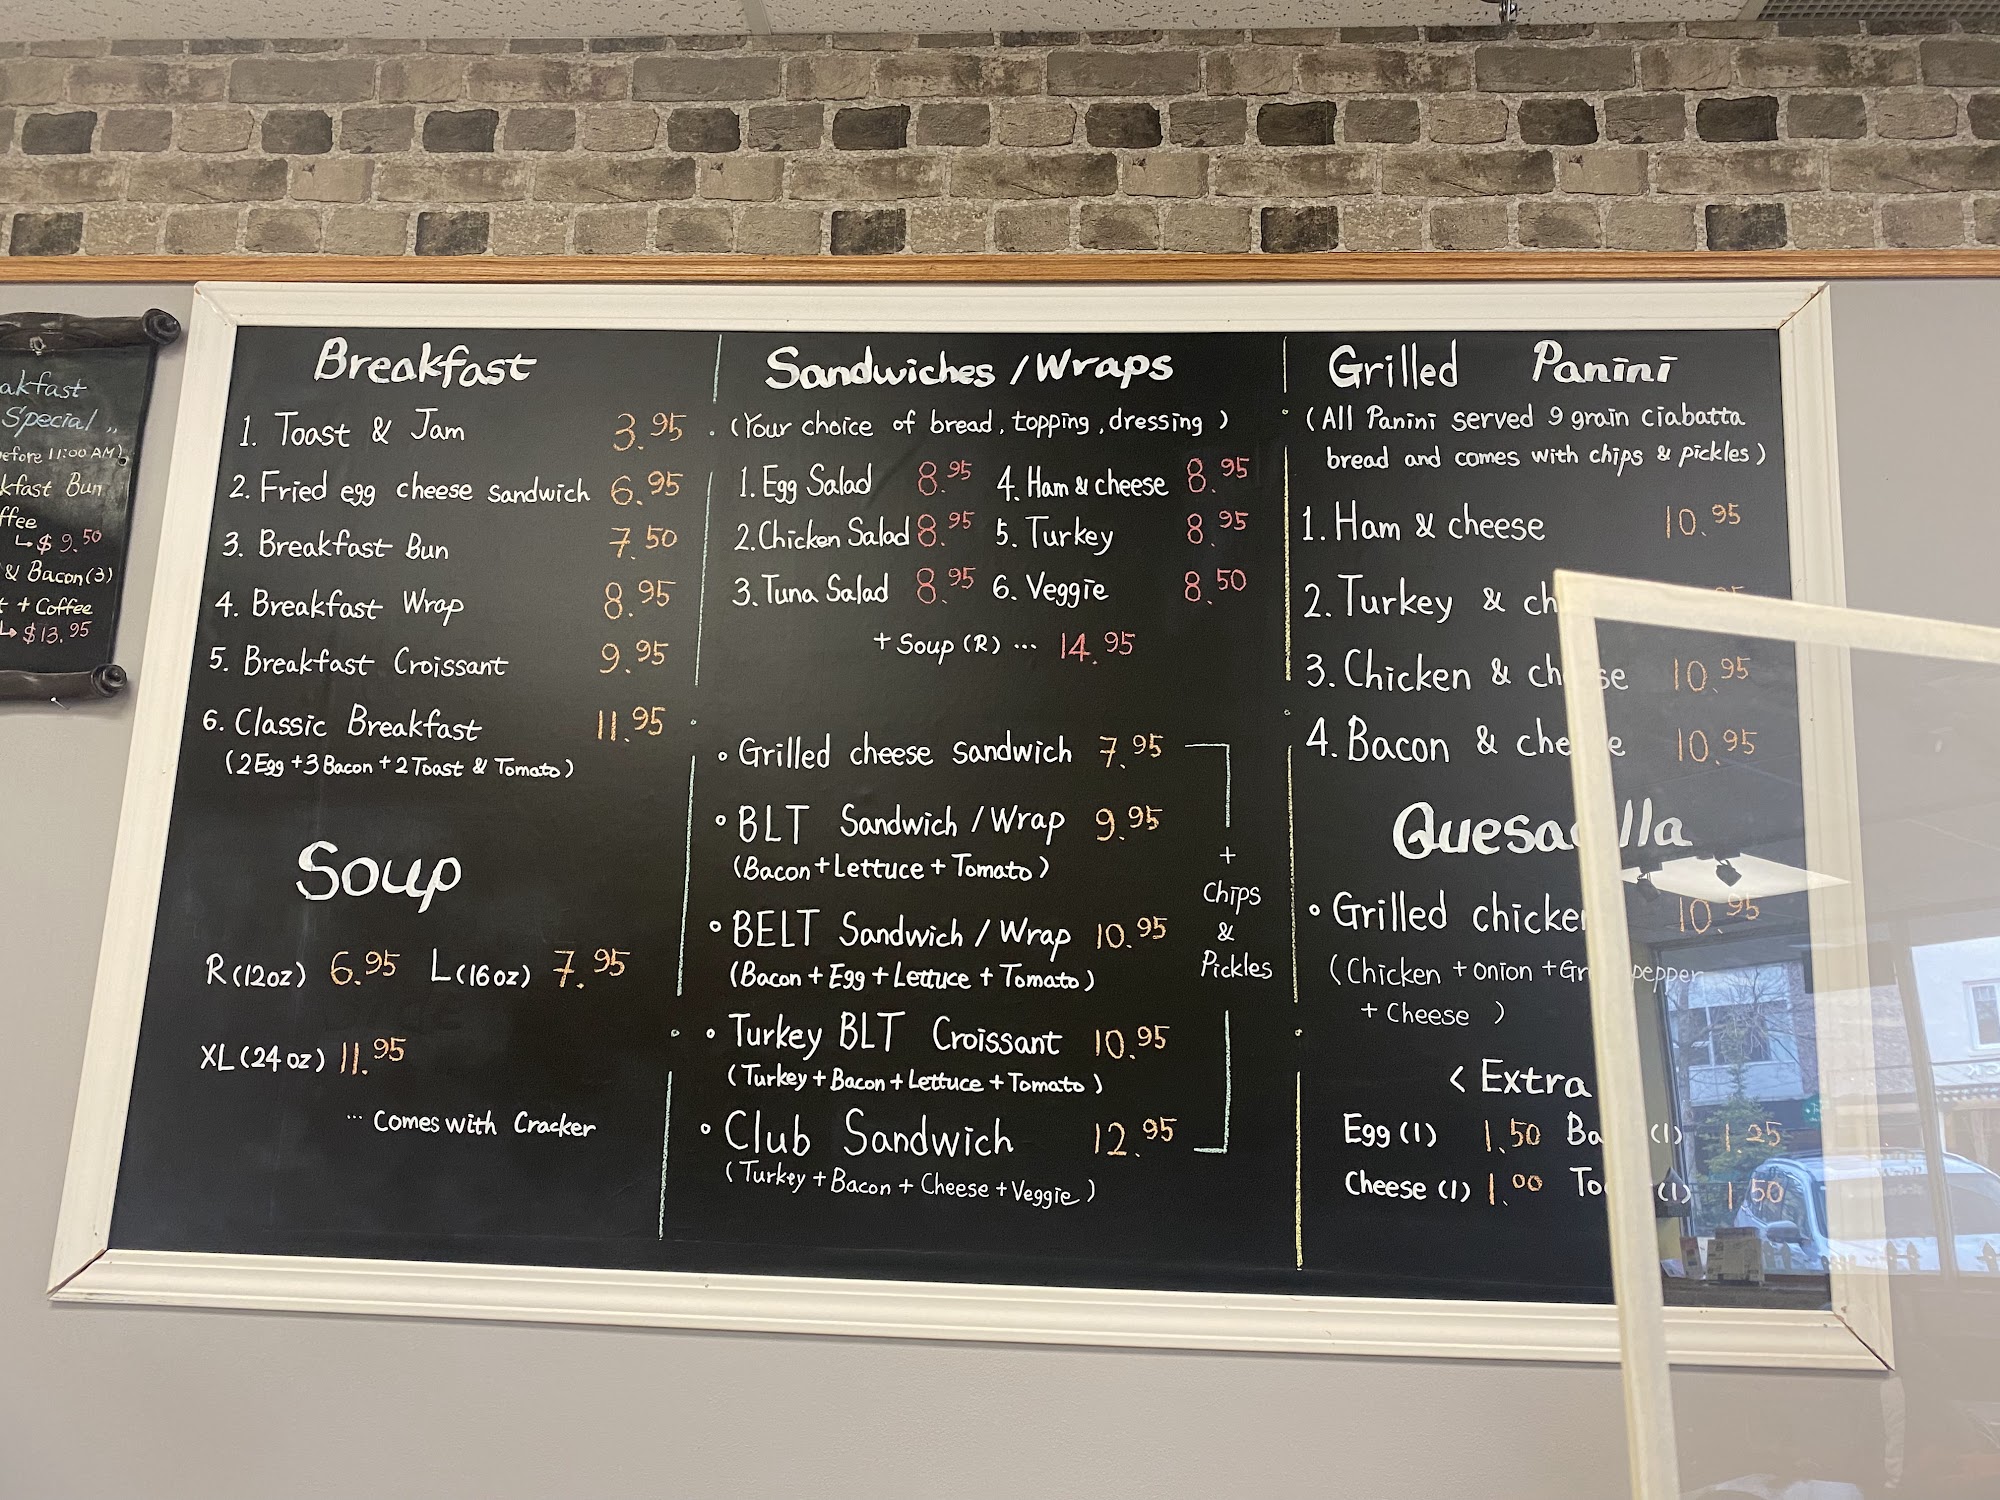 akfast
Special
efore 11:00 AM)
kfast Bun
ffee
↳ $9.50
& Bacon(3)
t + Coffee
↳ $13.95
Breakfast
1. Toast & Jam 3.95
2. Fried egg cheese sandwich 6.95
3. Breakfast Bun 7.50
4. Breakfast Wrap 8.95
5. Breakfast Croissant 9.95
6. Classic Breakfast 11.95
(2 Egg + 3 Bacon + 2 Toast & Tomato)
Soup
R (12oz) 6.95 L (16oz) 7.95
XL (24oz) 11.95
... Comes with Cracker
Sandwiches / Wraps
(Your choice of bread, topping, dressing)
1. Egg Salad 8.95 4. Ham & cheese 8.95
2. Chicken Salad 8.95 5. Turkey 8.95
3. Tuna Salad 8.95 6. Veggie 8.50
+ Soup (R) ... 14.95
Grilled cheese sandwich 7.95
BLT Sandwich / Wrap 9.95
(Bacon + Lettuce + Tomato)
BELT Sandwich / Wrap 10.95
(Bacon + Egg + Lettuce + Tomato)
Turkey BLT Croissant 10.95
(Turkey + Bacon + Lettuce + Tomato)
Club Sandwich 12.95
(Turkey + Bacon + Cheese + Veggie)
+
Chips
&
Pickles
Grilled Panini
(All Panini served 9 grain Ciabatta
bread and comes with chips & pickles)
1. Ham & cheese 10.95
2. Turkey & ch
3. Chicken & cheese 10.95
4. Bacon & cheese 10.95
Quesadilla
Grilled chicken 10.95
(Chicken + Onion + Gr pepper
+ Cheese)
< Extra
Egg (1) 1.50 Ba (1) 1.25
Cheese (1) 1.00 To (1) 1.50